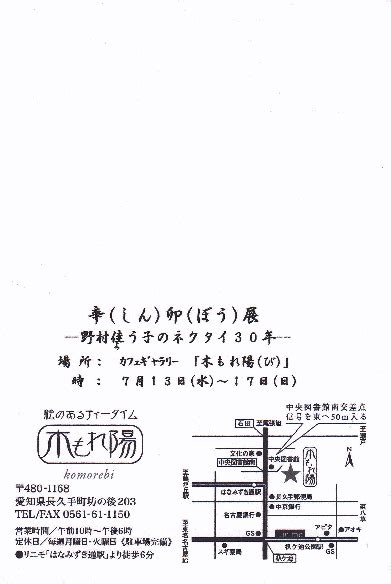 華(しん)卯(ぼう)展
野村佳う子のネクタイ30年
場所: カフェギャラリー 「木もれ陽(び)」
時: 7月13日(水)~17日(日)
絵のあるティータイム
木もれ陽
komorebi
〒480-1168
愛知県長久手町坊の後203
TEL/FAX 0561-61-1150
営業時間/午前10時~午後6時
定休日/毎週月曜日・火曜日《駐車場完備》
●リニモ「はなみずき通駅」より徒歩6分
中央図書館南交差点
信号を東へ50m入る
石田
至尾張旭
文化の家
中央図書館南
中央図書館
木もれ陽
はなみずき通駅
長久手郵便局
中京銀行
名古屋銀行
GS
アピタ
アオキ
杁ケ池公園駅
杁ケ池
スギ薬局
GS